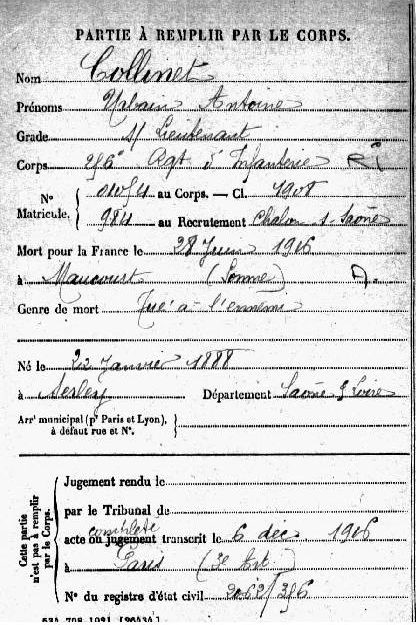 PARTIE À REMPLIR PAR LE CORPS.
Nom Collinet
Prénoms Urbain Antoine
Grade S/ Lieutenant
Corps 256e Rgt d'Infanterie RI
N° Matricule. au Corps. — Cl. 1908
984 au Recrutement Chalon-s-Saône
Mort pour la France le 28 Juin 1916
à Maucourt (Somme) A.
Genre de mort Tué à l'ennemi
Né le 22 Janvier 1888
à Département Saône & Loire
Arrt municipal (pr Paris et Lyon), à défaut rue et N°.
Cette partie n'est pas à remplir par le Corps.
Jugement rendu le
par le Tribunal de
complété
acte ou jugement transcrit le 6 déc 1916
à Paris (3e Art.)
N° du registre d'état civil
534.708.1921. [26434]